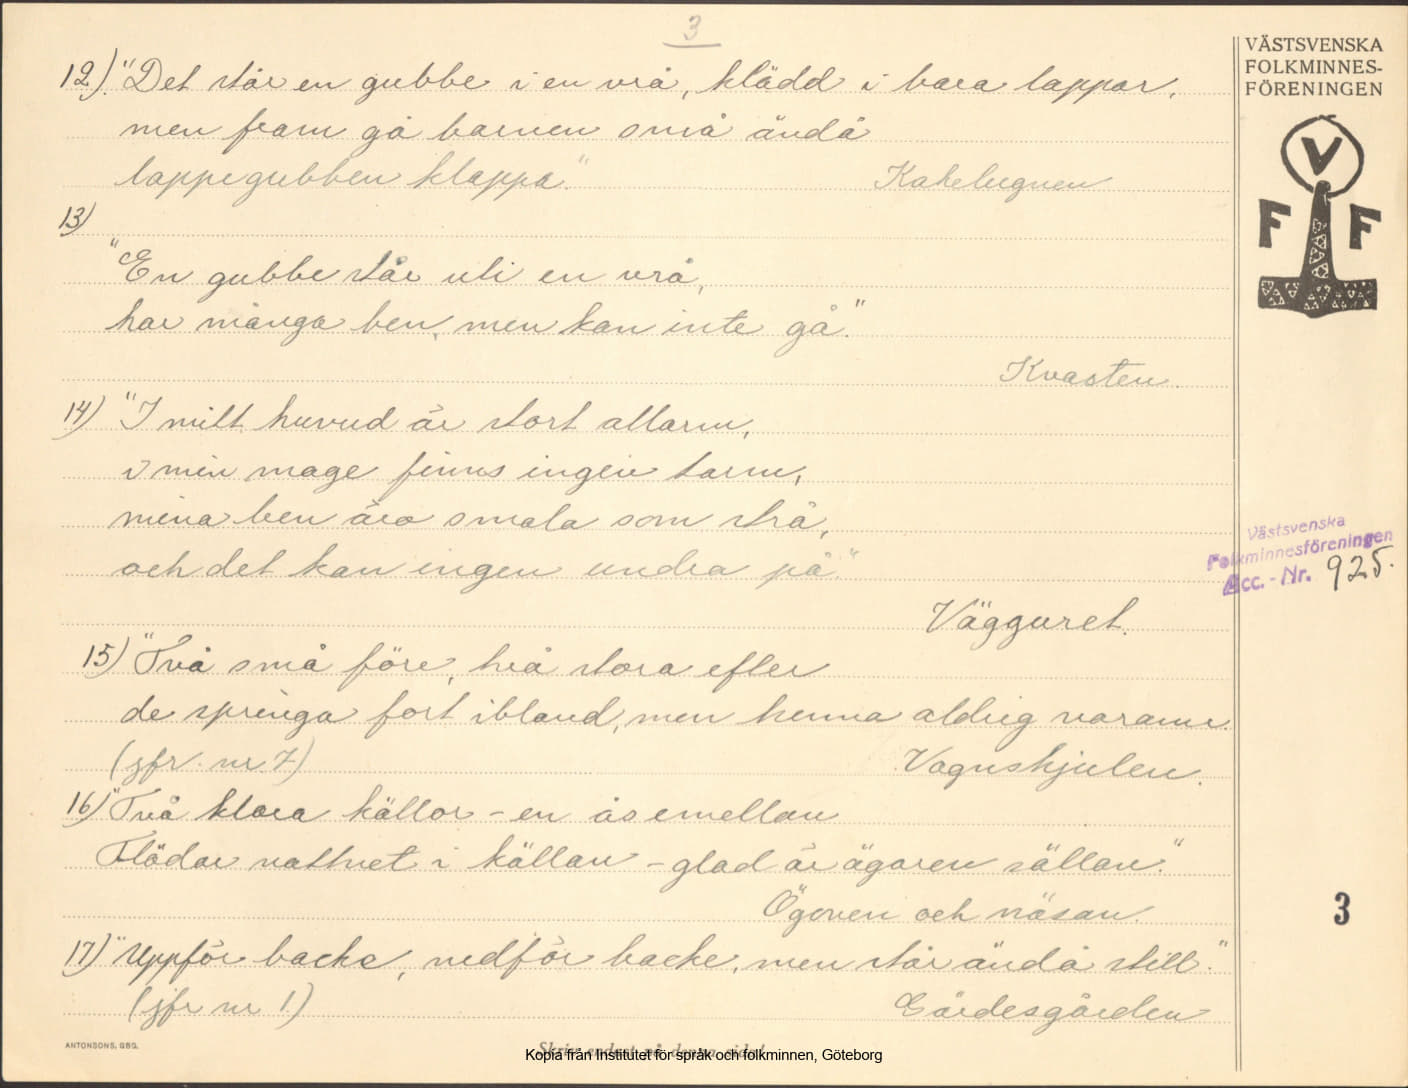 3
12.) "Det står en gubbe i en vrå, klädd i bara lappar,
men fram gå barnen små ändå
lappegubben klappa."
Kakelugnen
13)
"En gubbe står uti en vrå,
har många ben, men kan inte gå."
Kvasten.
14) "I mitt huvud är stort allarm,
i min mage finns ingen tarm,
mina ben äro smala som strå,
och det kan ingen undra på."
Vägguret.
15) "Två små före, två stora efter
de springa fort ibland, men hinna aldrig varann.
(jfr. nr 7)
Vagnshjulen.
16) "Två klara källor – en ås emellan
Flödar vattnet i källan – glad är ägaren sällan."
Ögonen och näsan.
17) "Uppför backe, nedför backe, men står ändå still."
(jfr nr 1.)
Gärdesgården
ANTONSONS, GBG.
Skriv endast på denna sida!
Kopia från Institutet för språk och folkminnen, Göteborg
VÄSTSVENSKA
FOLKMINNES-
FÖRENINGEN
V
F F
Västsvenska
Folkminnesföreningen
Acc. - Nr. 925.
3